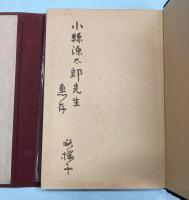 小縣源太郎先生
恵存
秋櫻子